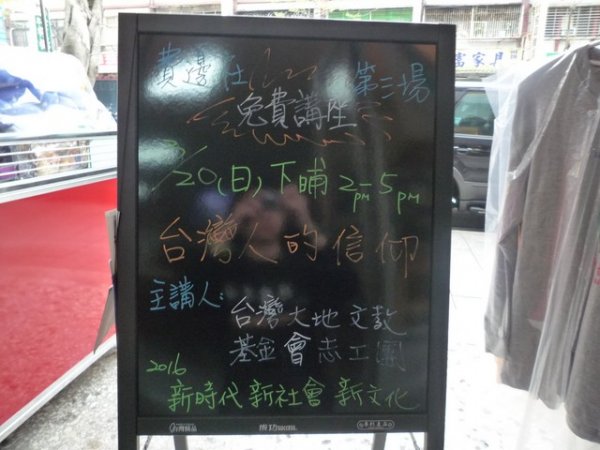 費邊社 第三場
免費講座
3/20(日)下晡2pm-5pm
台灣人的信仰
主講人:
台灣大地文教
基金會志工團
2016
新時代 新社會 新文化
台灣精品 成功